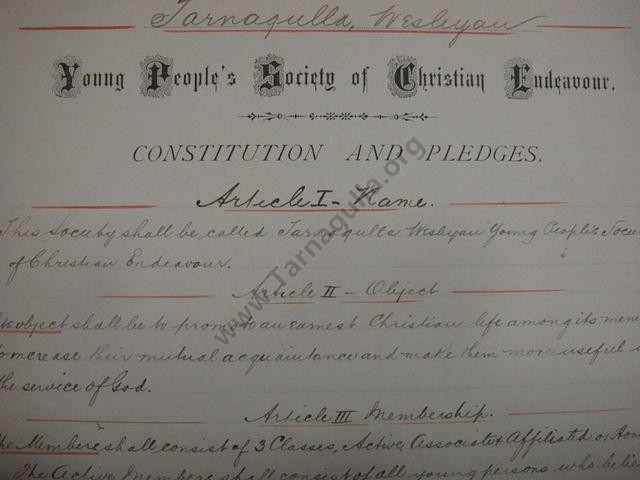 Tarnagulla, Wesleyan
Young People's Society of Christian Endeavour.
CONSTITUTION AND PLEDGES.
Article I - Name.
This Society shall be called Tarnagulla Wesleyan Young People's Socie
of Christian Endeavour.
Article II - Object
Its object shall be to promote an earnest Christian life among its mem
to increase their mutual acquaintance and make them more useful i
the service of God.
Article III Membership.
The Members shall consist of 3 Classes, Active, Associate & Affiliated or Hon
The Active Members shall consist of all young persons who belie
www.Tarnagulla.org